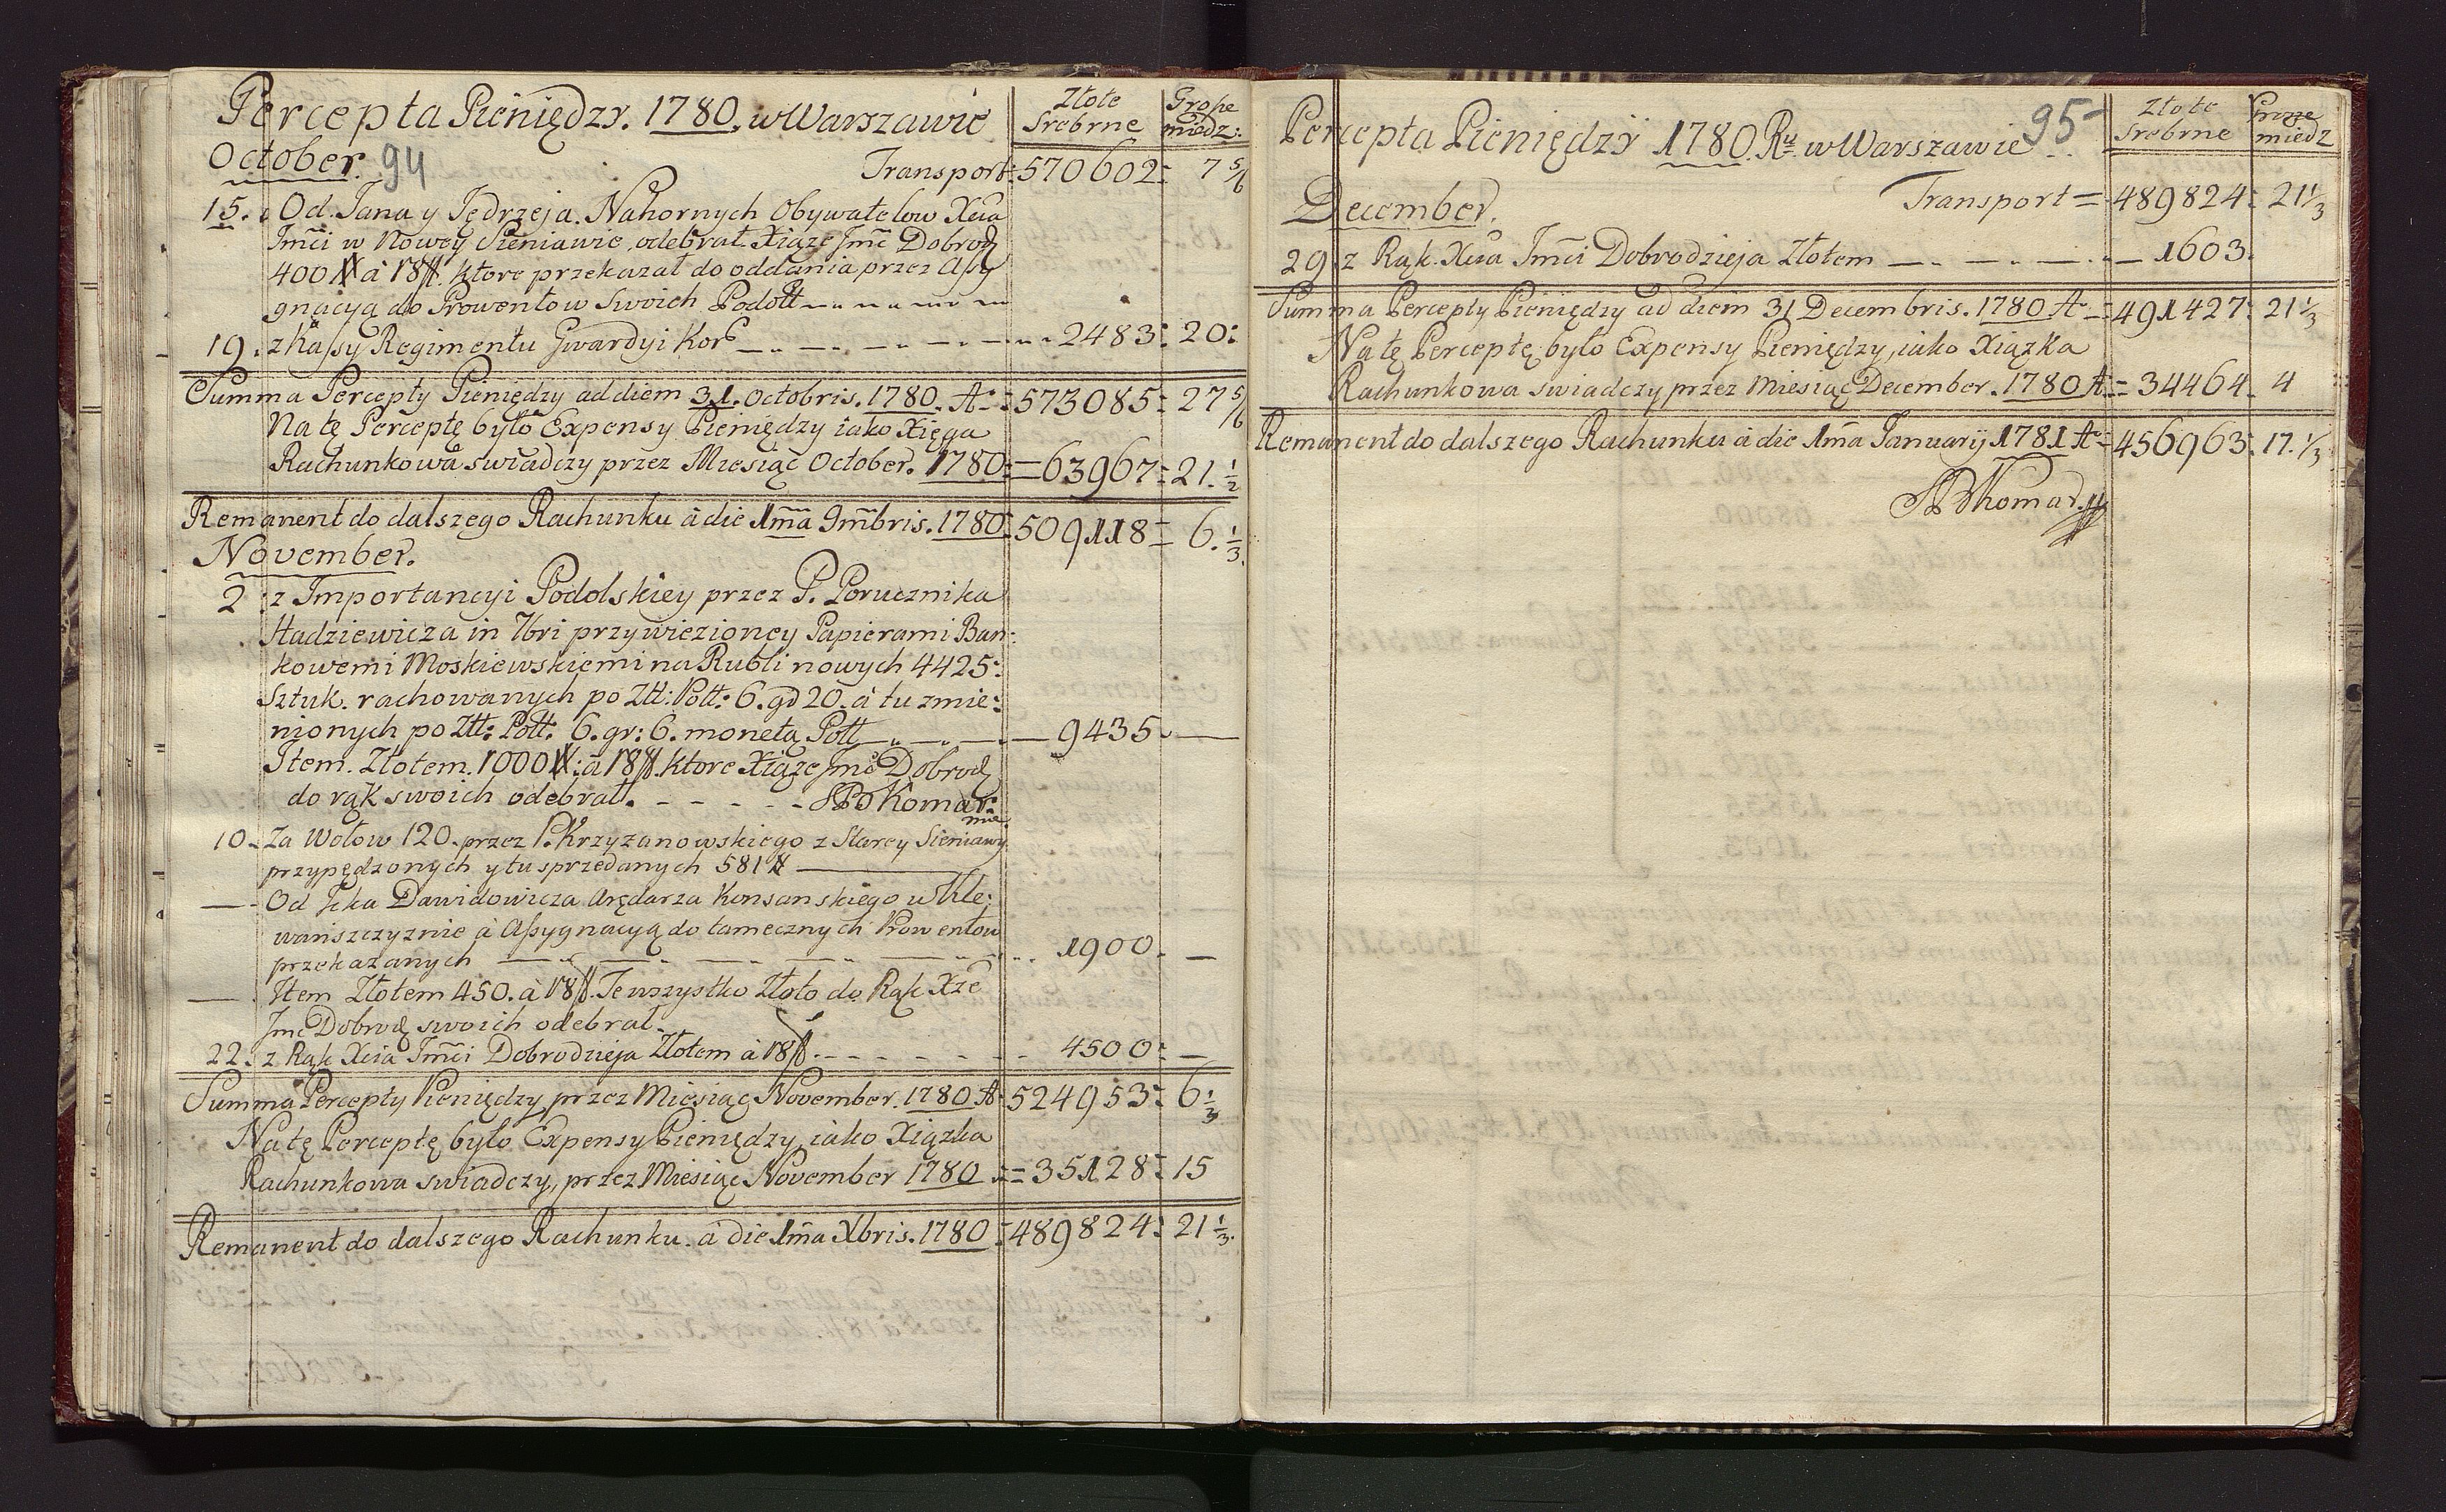 Percepta Pieniędzy. 1780. w Warszawie
Złote Srebrne
Grosze miedz:
October. 94
Transport: 570602: 7 5/6
15. Od Jana y Jędrzeja Nahornych Obywatelow Xcia
Jmci w Nowey Sieniawie odebrał Xiąże Jmć Dobrodz
400 # à 18 ff. ktore przekazał do oddania przez Assy
gnacyą do Prowentow Swoich Podoll
19. z Kassy Regimentu Gwardyi Kor 2483: 20:
Summa Percepty Pieniędzy ad diem 31. Octobris. 1780. A: 573085: 27 5/6
Na tę Perceptę było Expensy Pieniędzy iako Xięga
Rachunkowa swiadczy przez Miesiąc October. 1780: 63967: 21. 1/2
Remanent do dalszego Rachunku à die 1ma 9mbris. 1780: 509118: 6. 1/3
November.
2. z Importancyi Podolskiey przez P. Porucznika
Hadziewicza in 7bri przywiezioney Papierami Ban:
kowemi Moskiewskiemi na Rubli nowych 4425:
Sztuk. rachowanych po Ztt: Poll: 6. gr 20. à tu zmie:
nionych po Ztt: Poll: 6. gr: 6. monetą Poll 9435.
Item. Złotem. 1000 #: à 18 ff. ktore Xiąże Jmć Dobrodz
do rąk swoich odebrał. SB Komar: mp
10. Za Wołow 120. przez P. Krzyżanowskiego z Starey Sieniawy
przypędzonych y tu sprzedanych 581 #
Od Icka Dawidowicza Arędarza Konsanskiego w Kle:
wanszczyznie à Assygnacyą do tamecznych Prowentow
przekazanych 1900.
Item Złotem 450. à 18 ff. Te wszystko Złoto do Rąk Xże
Jmć Dobrodz swoich odebrał.
22. z Rąk Xcia Jmci Dobrodzieja Złotem à 18 ff. 4500:
Summa Percepty Pieniędzy przez Miesiąc November. 1780 A: 524953: 6 1/3
Na tę Perceptę było Expensy Pieniędzy, iako Xiązka
Rachunkowa swiadczy, przez Miesiąc November 1780 35128: 15
Remanent do dalszego Rachunku. à die 1ma Xbris. 1780 489824: 21 1/3.
Percepta Pieniędzy 1780. Ru w Warszawie 95
Złote Srebrne
Grosze miedz
December. Transport = 489824: 21 1/3
29. z Rąk. Xcia Jmci Dobrodzieja Złotem 1603.
Summa Percepty Pieniędzy ad diem 31 Decembris. 1780 A 491427: 21 1/3
Na tę Perceptę było Expensy Pieniędzy, iako Xiązka
Rachunkowa swiadczy przez Miesiąc December. 1780 A = 34464. 4
Remanent do dalszego Rachunku à die 1ma Januarij 1781 A 456963: 17. 1/3
SB Komar mp